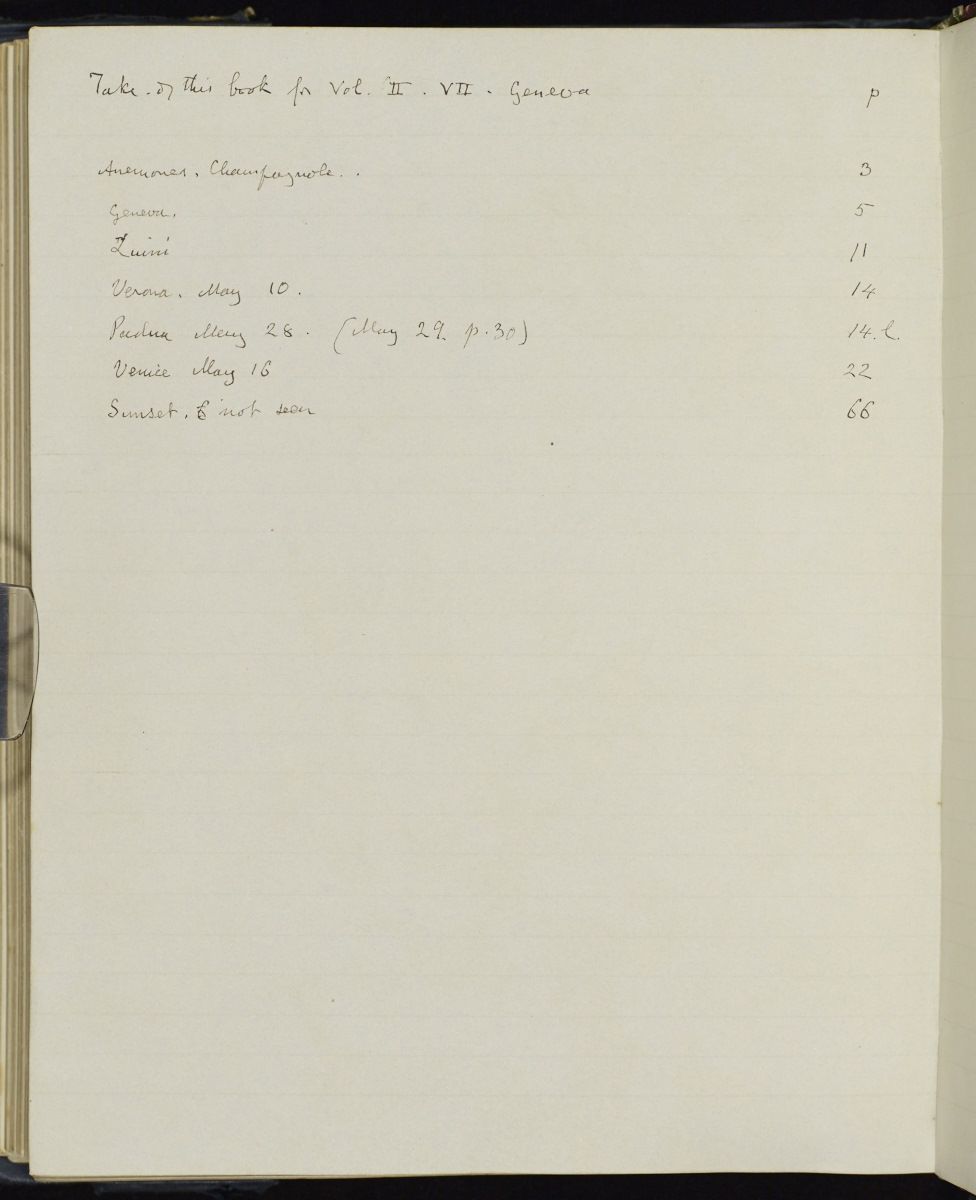 Take of this book for Vol. II. VII. Geneva p
Anemones. Champagnole. . 3
Geneva. 5
Luini 11
Verona. May 10. 14
Padua May 28. (May 29. p. 30) 14. l.
Venice May 16 22
Sunset. not seen 66